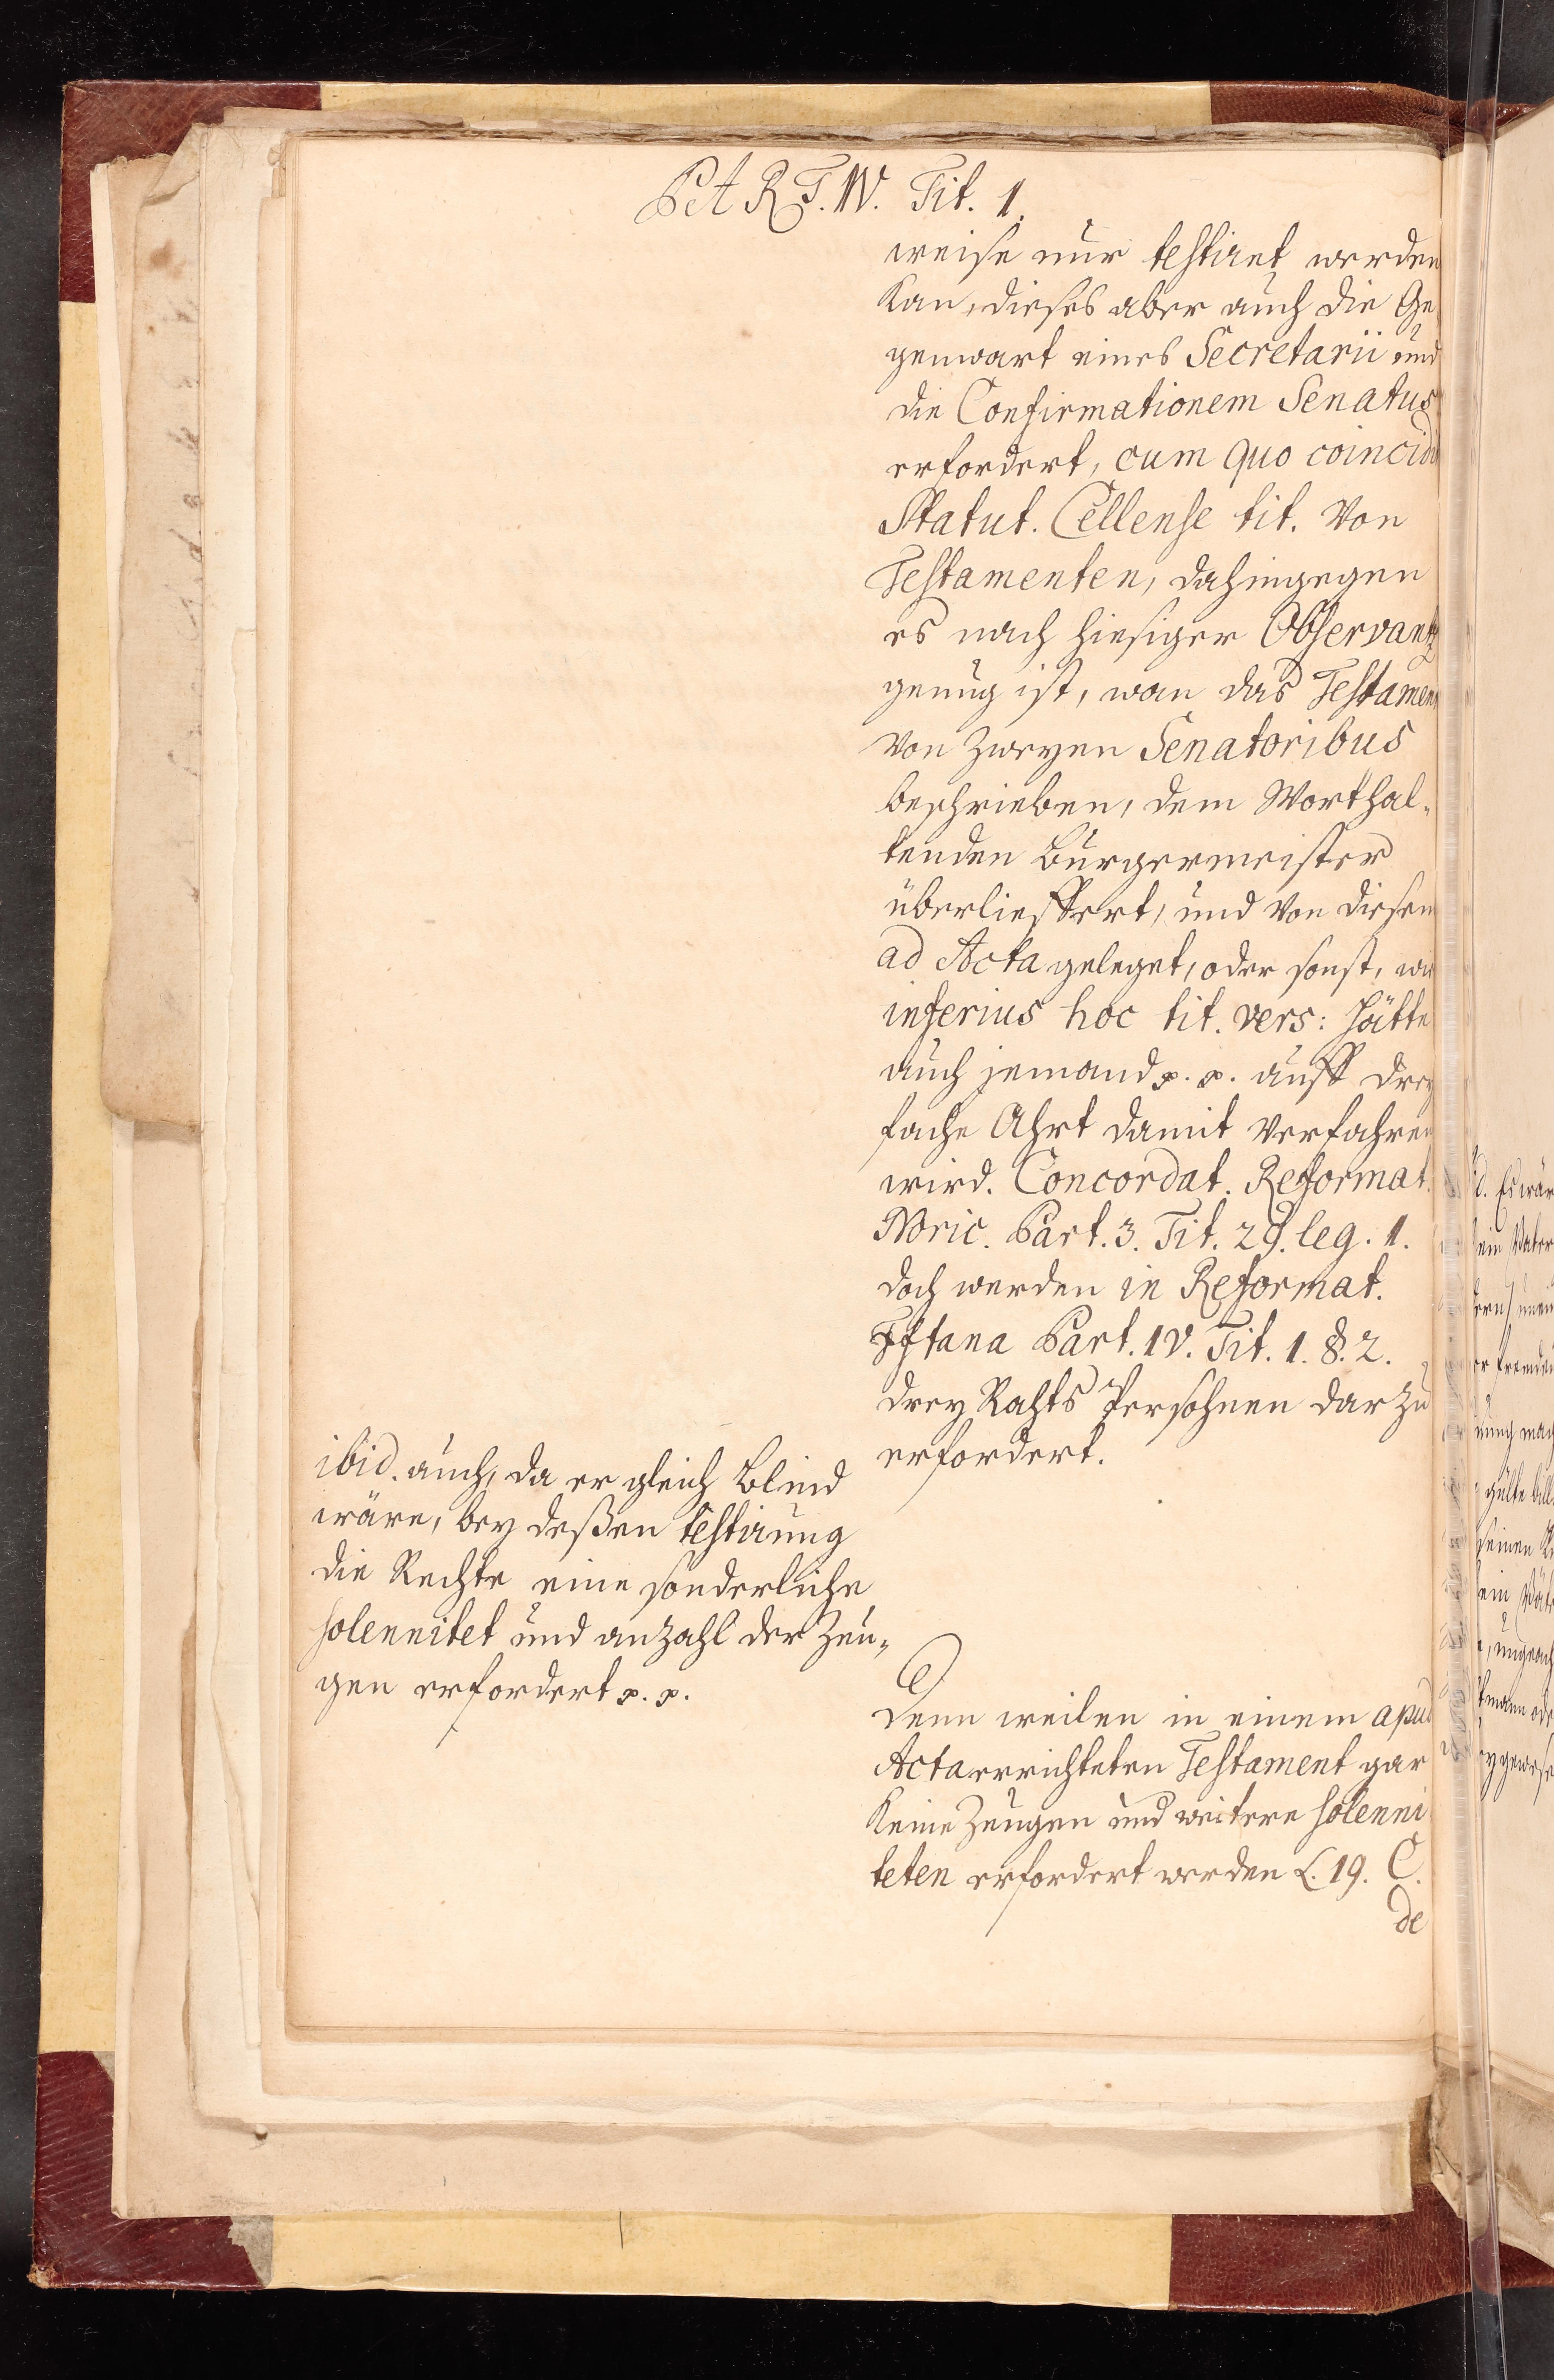 PART. IV. Tit. 1.
weise nur testiret werden
kan, dieses aber auch die Ge
genwart eines Secretarii und
die Confirmationem Senatus
erfordert, cum quo coincidi
Statut. Cellense tit. Von
Testamenten, dahingegen
es nach hiesiger Observantz
genug ist, wan das Testamen
von zweyen Senatoribus
beschrieben, dem Worthal-
tenden Burgermeister
überlieffert, und von diesem
ad Acta geleget, oder sonst, wie
inferius hoc tit. vers: Hätte
auch jemand p. p. auff drey
fache Ahrt damit verfahren
wird. Concordat. Reformat.
Noric. Part. 3. Tit. 29. leg. 1.
doch werden in Reformat.
Fftana Part. IV. Tit. 1. §. 2.
drey Rahts Persohnen dar zu
erfordert.
ibid. auch, da er gleich blind
wäre, bey deßen testirung
die Rechte eine sonderliche
solennitet und anzahl der Zeu-
gen erfordert p. p.
Denn weilen in einem apud
Acta errichteten Testament gar
keine Zeugen und weitere solenni
teten erfordert werden L. 19. C.
de